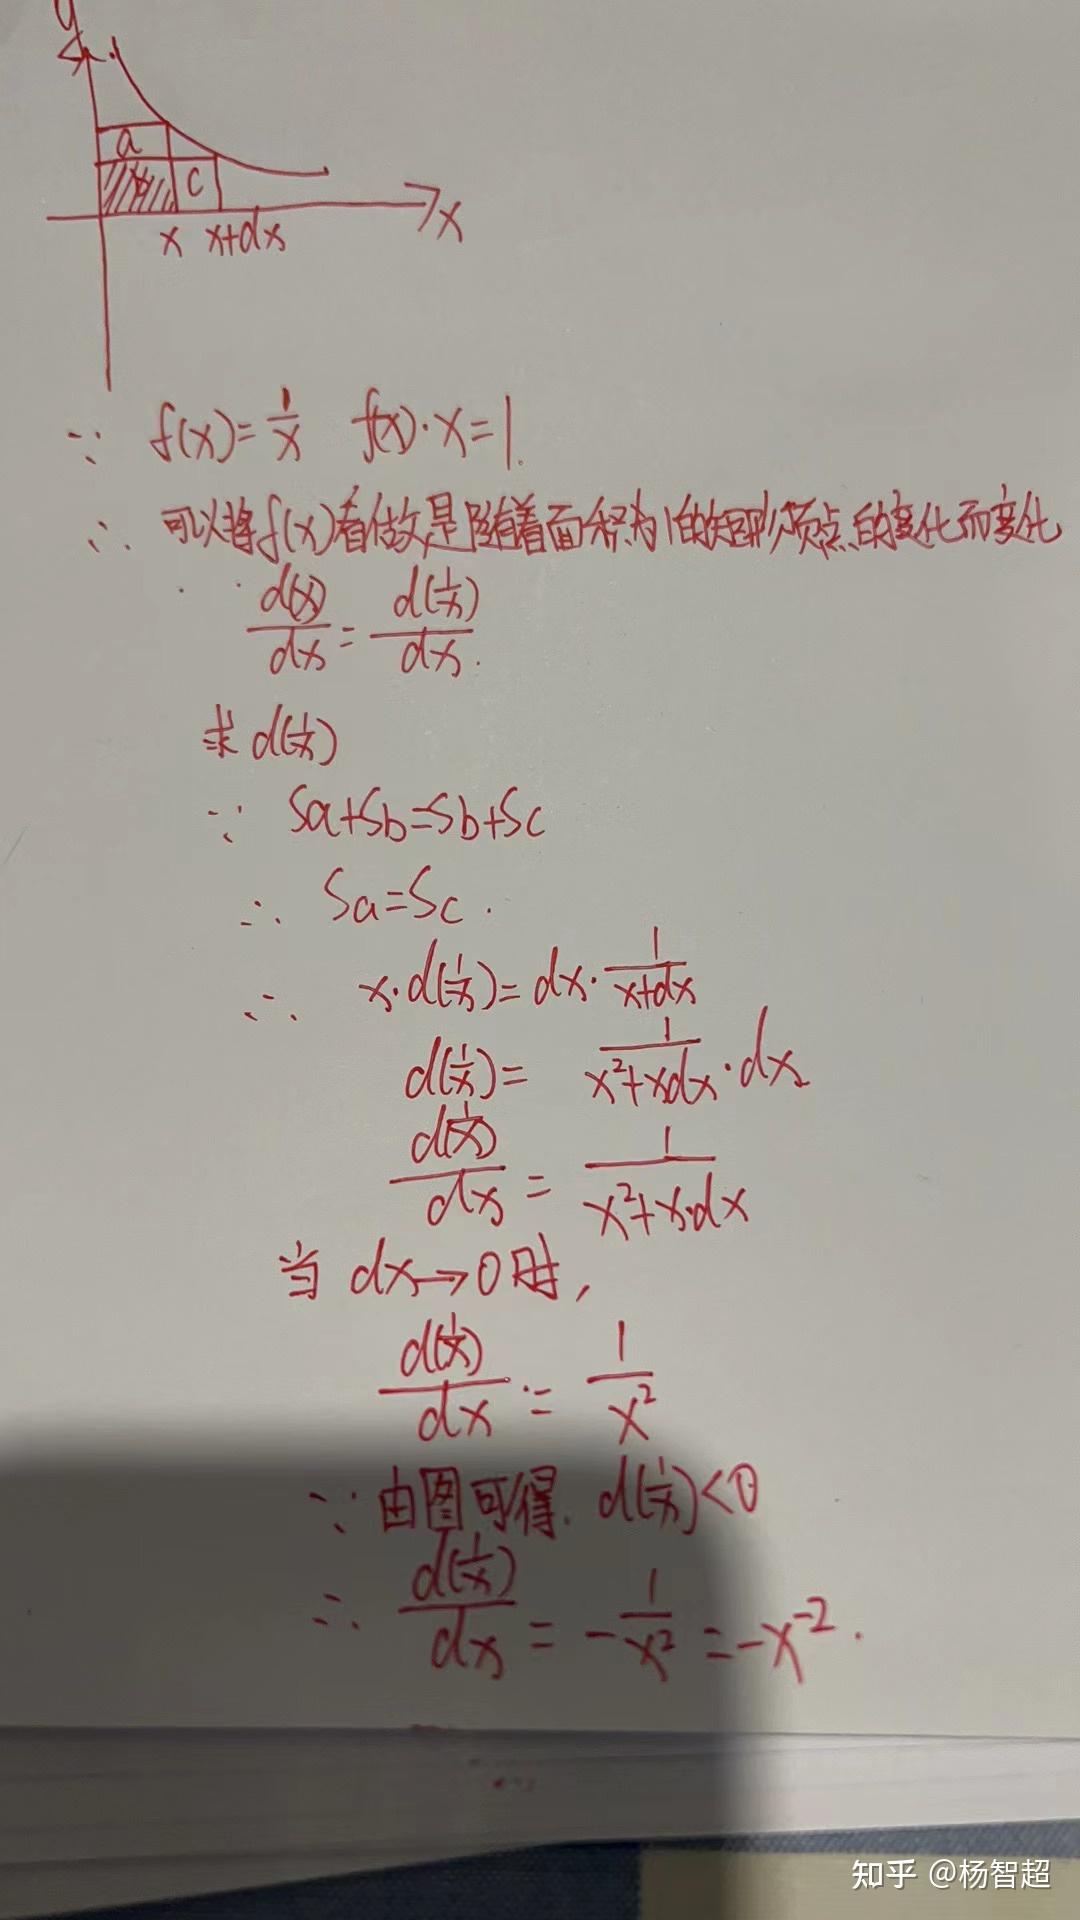 y
a
b c
x x+dx
x
∵ f(x)=1/x f(x)·x=1.
∴ 可以将f(x)看做是随着面积为1的矩形顶点的变化而变化
d(x)/dx = d(1/x)/dx.
求 d(1/x)
∵ Sa+Sb=Sb+Sc
∴ Sa=Sc.
∴ x·d(1/x)=dx·1/(x+dx)
d(1/x)= 1/(x²+xdx)·dx
d(1/x)/dx = 1/(x²+x·dx)
当 dx→0时,
d(1/x)/dx = 1/x²
∵ 由图可得. d(1/x)<0
∴ d(1/x)/dx = -1/x² = -x⁻².
知乎 @杨智超